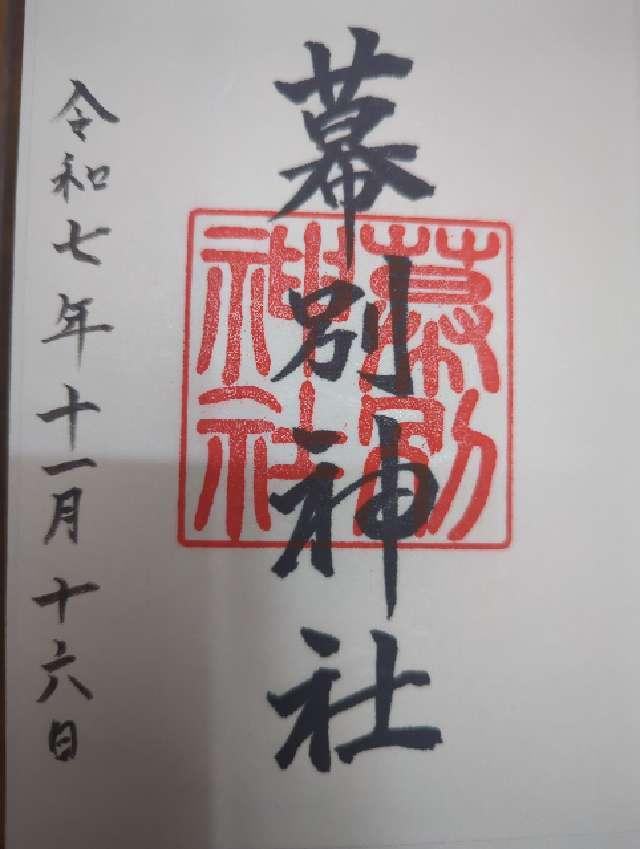 幕別神社
幕別
神社
令和七年十一月十六日